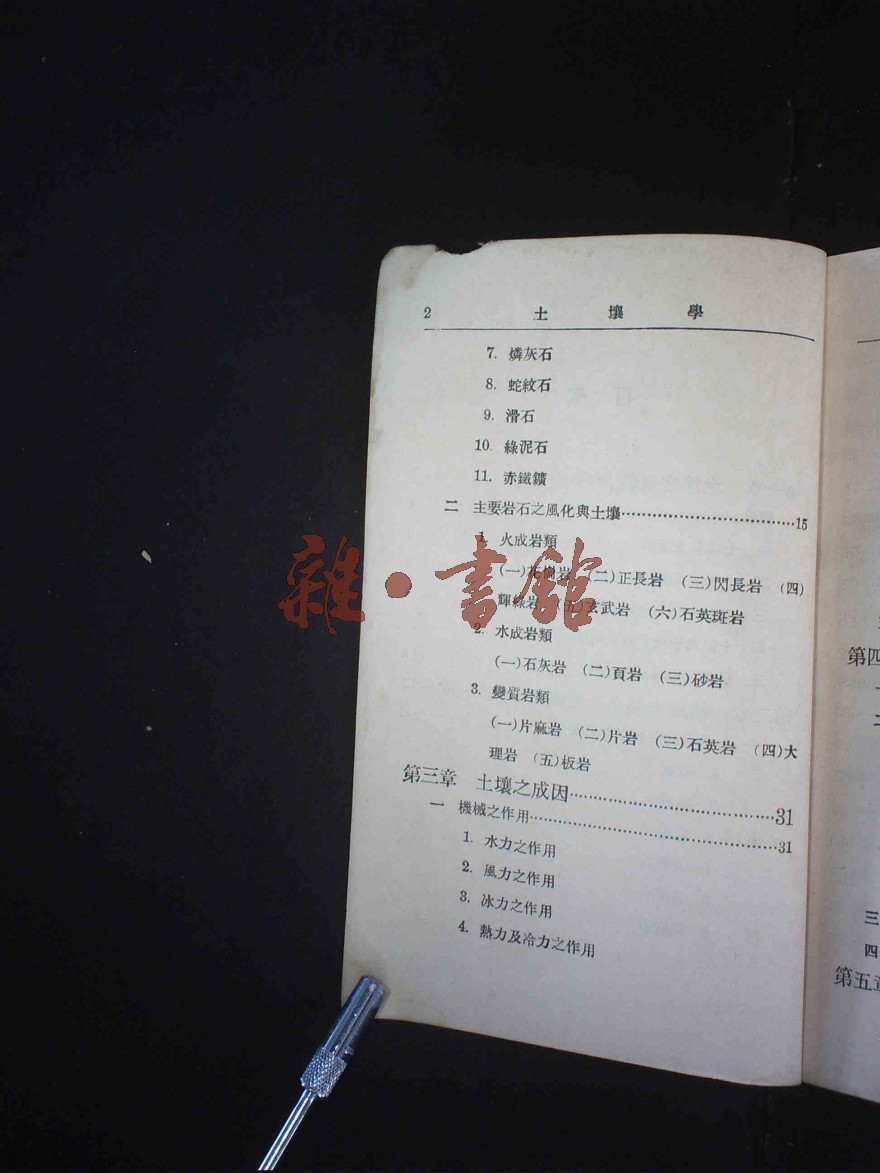 2 土壤學
7. 燐灰石
8. 蛇紋石
9. 滑石
10. 綠泥石
11. 赤鐵鑛
二 主要岩石之風化與土壤……………………………15
1. 火成岩類
(一)花崗岩 (二)正長岩 (三)閃長岩 (四)
輝綠岩 (五)玄武岩 (六)石英斑岩
2. 水成岩類
(一)石灰岩 (二)頁岩 (三)砂岩
3. 變質岩類
(一)片麻岩 (二)片岩 (三)石英岩 (四)大
理岩 (五)板岩
第三章 土壤之成因……………………………31
一 機械之作用……………………………31
1. 水力之作用
2. 風力之作用
3. 冰力之作用
4. 熱力及冷力之作用
雜·書館
第四
三
四
第五章